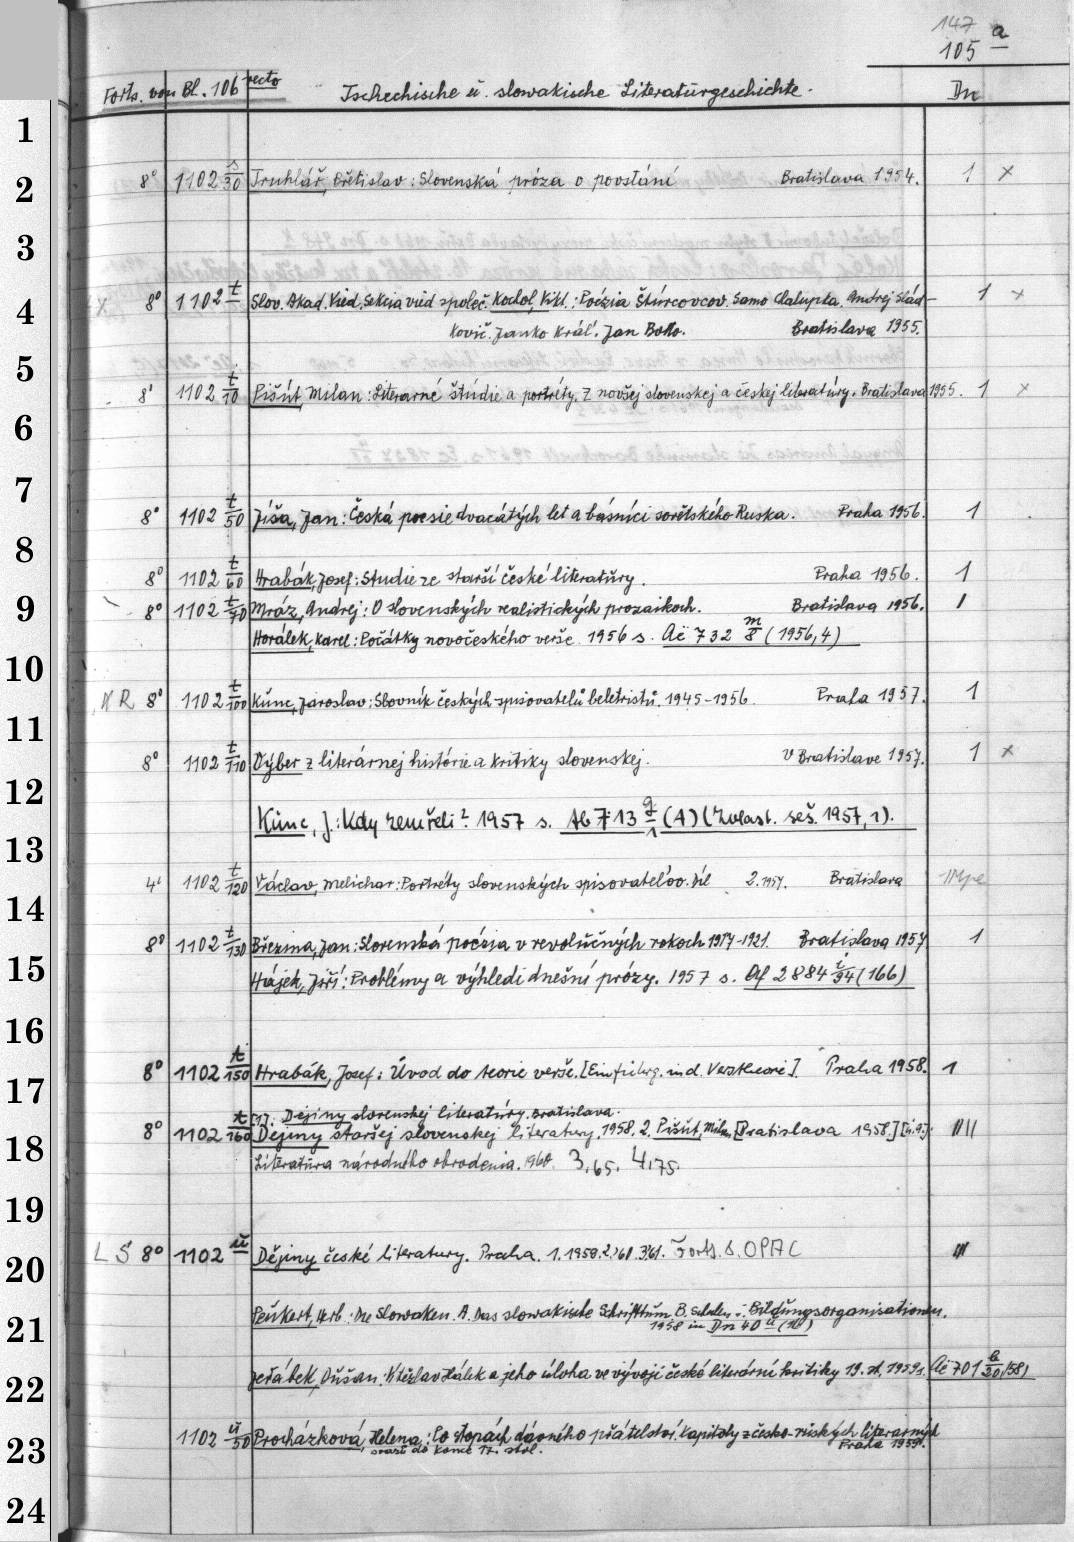 147
105 a
Forts. von Bl. 106 recto Tschechische u. slowakische Literaturgeschichte. Dn
1
2 8° 1102 s/30 Truhlář, Břetislav: Slovenská próza o povstání Bratislava 1954. 1 x
3
4 8° 1102 t Slov. Akad. Vied, Sekcia vied společ. Kochol, Vikt.: Poézia Štúrcovcov. Samo Chalupka. Andrej Slád- 1 x
kovič. Janko Kráľ. Jan Botto. Bratislava 1955.
5 8° 1102 t/10 Pišút, Milan: Literarné štúdie a portréty. Z novšej slovenskej a českej literatúry. Bratislava 1955. 1 x
6
7 8° 1102 t/50 Jíša, Jan: Česká poesie dvacátých let a básníci sovětského Ruska. Praha 1956. 1
8 8° 1102 t/60 Hrabák, Josef: Studie ze starší české literatury. Praha 1956. 1
9 8° 1102 t/70 Mráz, Andrej: O slovenských realistických prozaikoch. Bratislava 1956. 1
Horálek, Karel: Počátky novočeského verše 1956 s. Ač 732 m/8 (1956,4)
10
KR 8° 1102 t/100 Kunc, Jaroslav: Slovník českých spisovatelů beletristů. 1945-1956 Praha 1957. 1
11 8° 1102 t/110 Výber z literárnej histórie a kritiky slovenskej. V Bratislave 1957. 1 x
12
Kunc, J.: Kdy zemřeli? 1957 s. Ab 713 g/1 (A) (Zvlast. seš. 1957,1).
13
4° 1102 t/120 Václav, Melichar: Portréty slovenských spisovateľov. Díl 2. 1957. Bratislava
14
8° 1102 t/130 Březina, Jan: Slovenská poézia v revolučných rokoch 1917-1921. Bratislava 1957 1
15 Hájek, Jiří: Problémy a výhledi dnešní prózy. 1957 s. Af 2884 i/94 (166)
16
17 8° 1102 t/150 Hrabák, Josef: Úvod do teorie verše. [Einführg. in d. Verstheorie]. Praha 1958. 1
Dejiny slovenskej literatúry. Bratislava.
18 8° 1102 t/160 Dejiny staršej slovenskej literatury. 1958. 2. Pišút, Milan [Bratislava 1958]
Literatúra národného obrodenia. 1960. 3.65. 4.75.
19
20 LS 8° 1102 u Dějiny české literatury. Praha. 1.1958. 2.'60. 3.'61. Forts. s. OPAC III
21 Peukert, Herb.: Die Slowaken. A. Das slowakische Schrifttum B. Schulen u. Bildungsorganisationen.
1958 in Dn 40 u
22 Jeřábek, Dušan: Vítězslav Hálek a jeho úloha ve vývoji české literární kritiky 19. st. 1959 s. Ač 701 b/20 (58)
23 1102 u/50 Procházková, Helena: Po stopách dávného přátelství. Kapitoly z česko-ruských literarných
snah do konce 17. stol. Praha 1959.
24